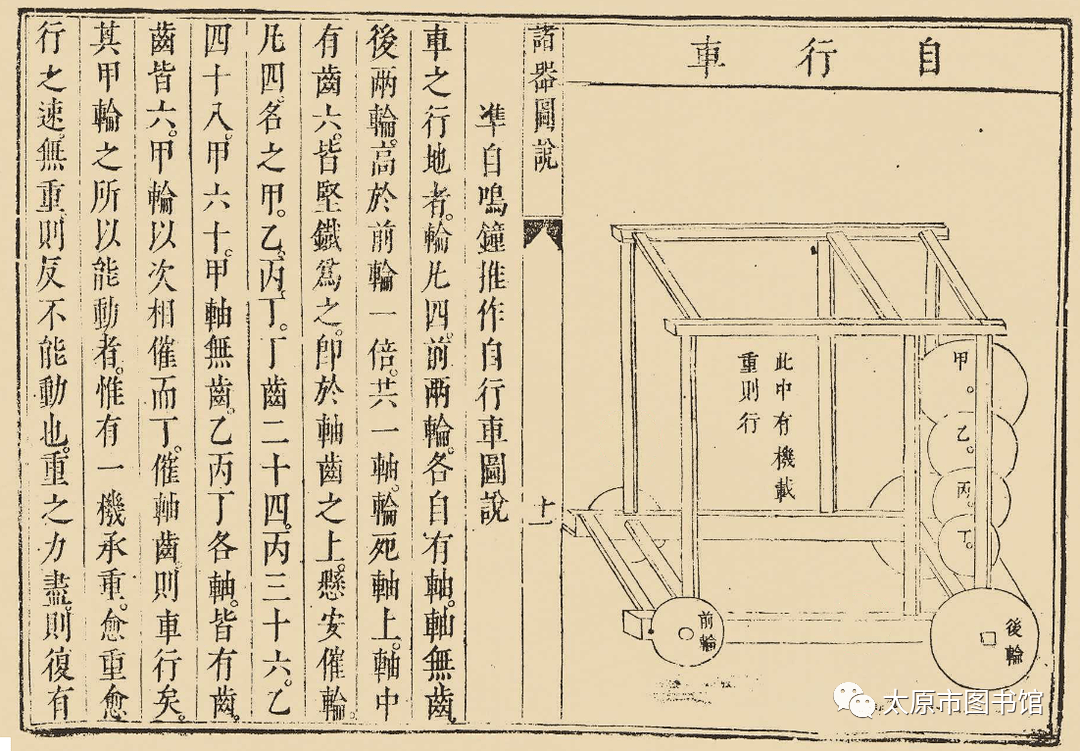 自行車
此中有機載
重則行
甲。
乙。
丙。
丁。
前輪
後輪
諸器圖說
十一
準自鳴鐘推作自行車圖說
車之行地者。輪凡四。前兩輪。各自有軸。軸無齒。
後兩輪。高於前輪一倍。共一軸。輪死軸上。軸中
有齒六。皆堅鐵為之。即於軸齒之上。懸安催輪。
凡四。名之甲。乙。丙。丁。丁齒二十四。丙三十六。乙
四十八。甲六十。甲軸無齒。乙丙丁各軸。皆有齒。
齒皆六。甲輪以次相催而丁。催軸齒則車行矣。
其甲輪之所以能動者。惟有一機承重。愈重愈
行之速。無重則反不能動也。重之力盡。則復有
太原市图书馆